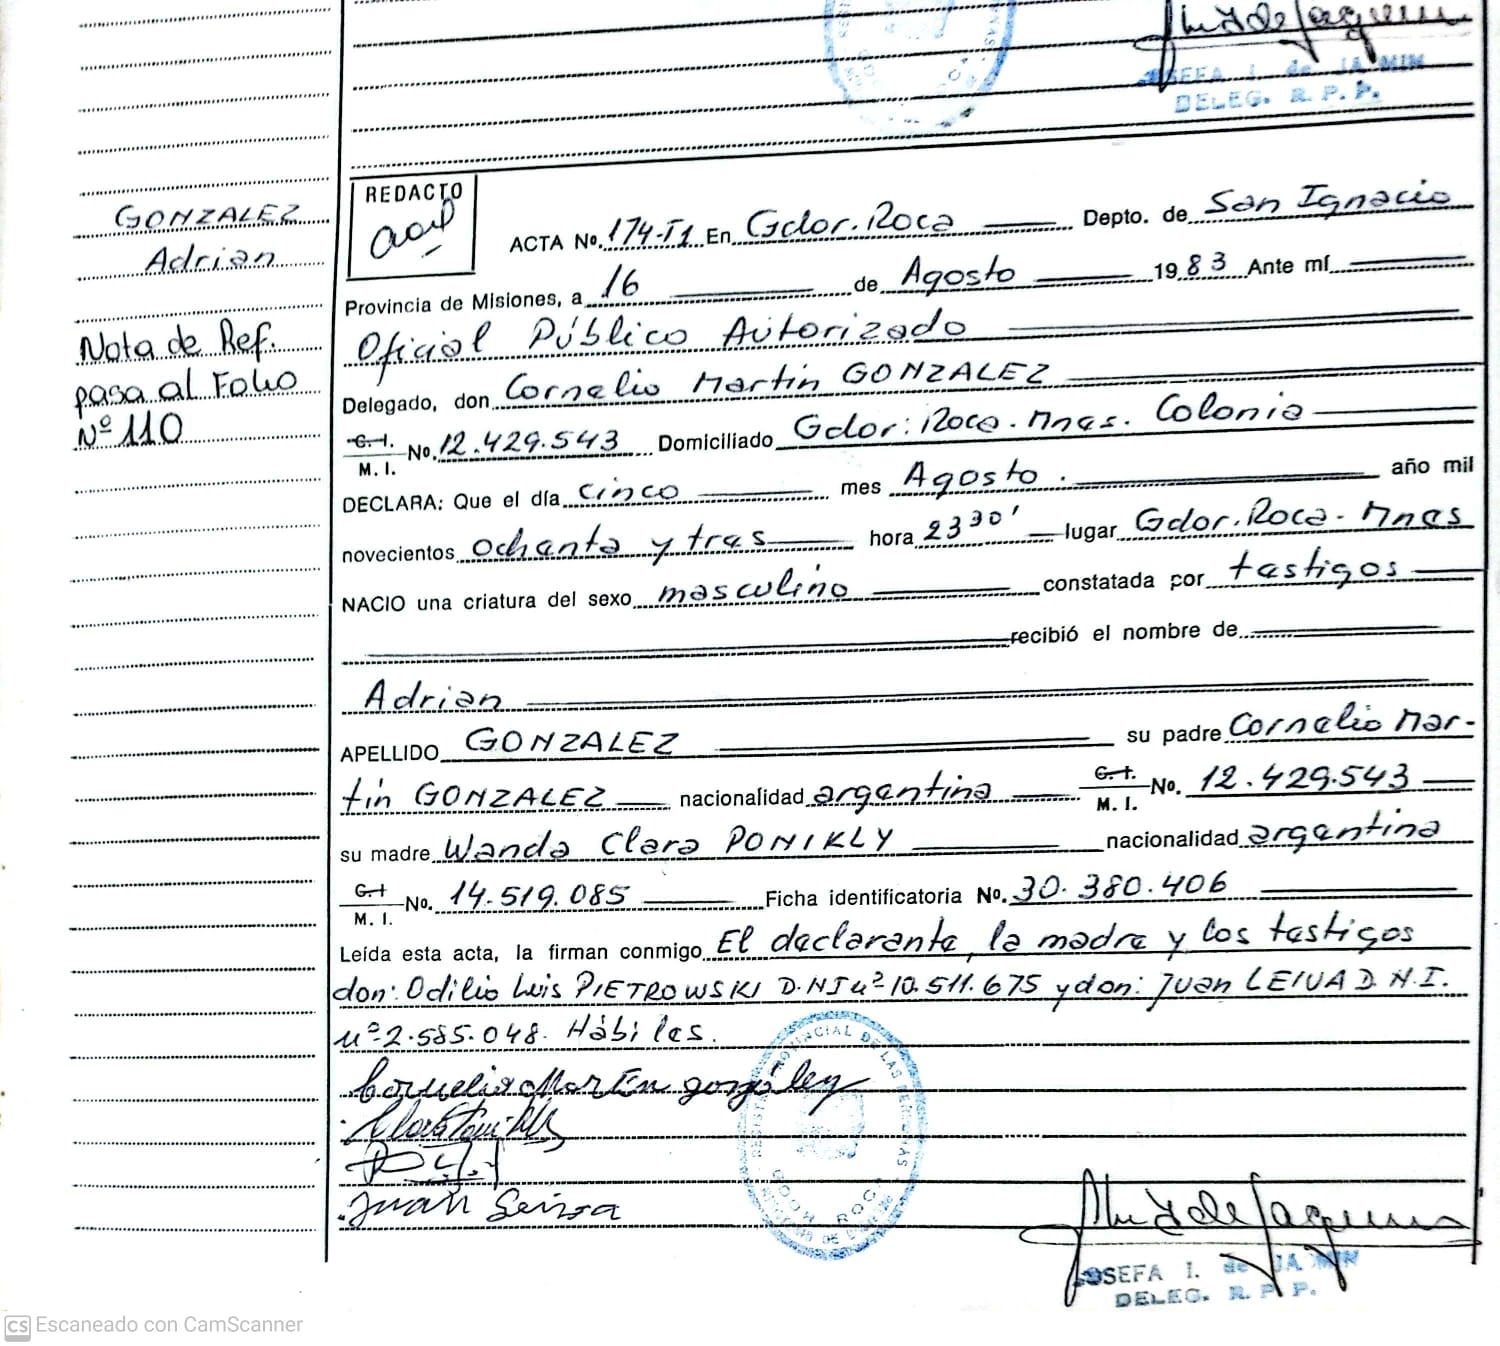 SEFA I. de JA MIN
DELEG. R. P. P.
GONZALEZ
Adrian
Nota de Ref.
pasa al Folio
Nº 110
REDACTO
ACTA No. 174-T1 En Gdor. Roca Depto. de San Ignacio
Provincia de Misiones, a 16 de Agosto 1983 Ante mí
Oficial Público Autorizado
Delegado, don Cornelio Martin GONZALEZ
C. I.
M. I. No. 12.429.543 Domiciliado Gdor: Roca. Mnes. Colonia
DECLARA: Que el día cinco mes Agosto. año mil
novecientos ochenta y tres hora 23 30' lugar Gdor. Roca - Mnes
NACIO una criatura del sexo masculino constatada por testigos
recibió el nombre de
Adrian
APELLIDO GONZALEZ su padre Cornelio Mar-
tin GONZALEZ nacionalidad argentina C. I. M. I. No. 12.429.543
su madre Wanda Clara PONIKLY nacionalidad argentina
C. I. M. I. No. 14.519.085 Ficha identificatoria No. 30.380.406
Leída esta acta, la firman conmigo El declarante, la madre y los testigos
don: Odilio Luis PIETROWSKI D.NI nº 10.511.675 y don: Juan LEIVA D.N.I.
nº 2.585.048. Hábiles.
Cornelio Martin gonzalez
Juan Leiva
JOSEFA I. de JA MIN
DELEG. R. P. P.
CS Escaneado con CamScanner